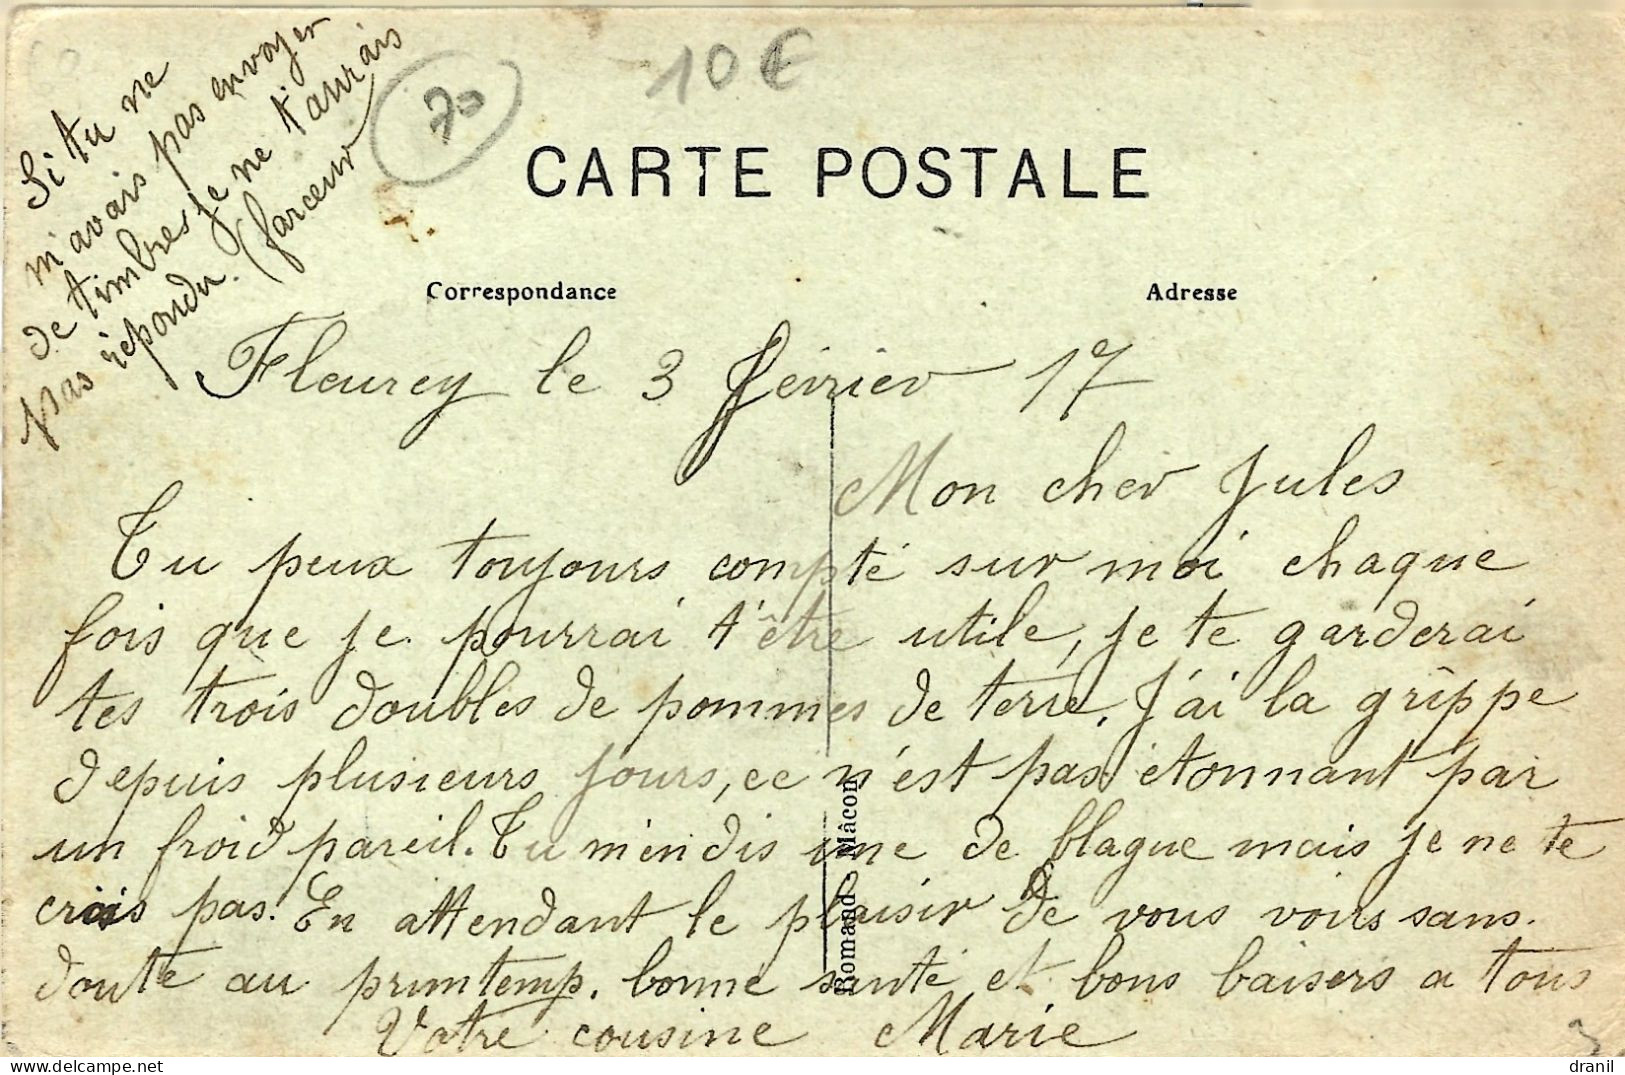 Si tu ne
m'avais pas envoyer
de timbres je ne t'aurais
pas répondu. (farceur)
70
10 €
CARTE POSTALE
Correspondance
Adresse
Fleurey le 3 février 17
Mon cher Jules
Tu peux toujours compté sur moi chaque
fois que je pourrai t'être utile, je te garderai
tes trois doubles de pommes de terre. J'ai la grippe
depuis plusieurs jours, ce n'est pas étonnant par
un froid pareil. Tu m'en dis une de blague mais je ne te
crois pas. En attendant le plaisir de vous voirs sans.
doute au printemp. bonne santé et bons baisers a tous
Votre cousine Marie
Romand - Mâcon
3
dranil